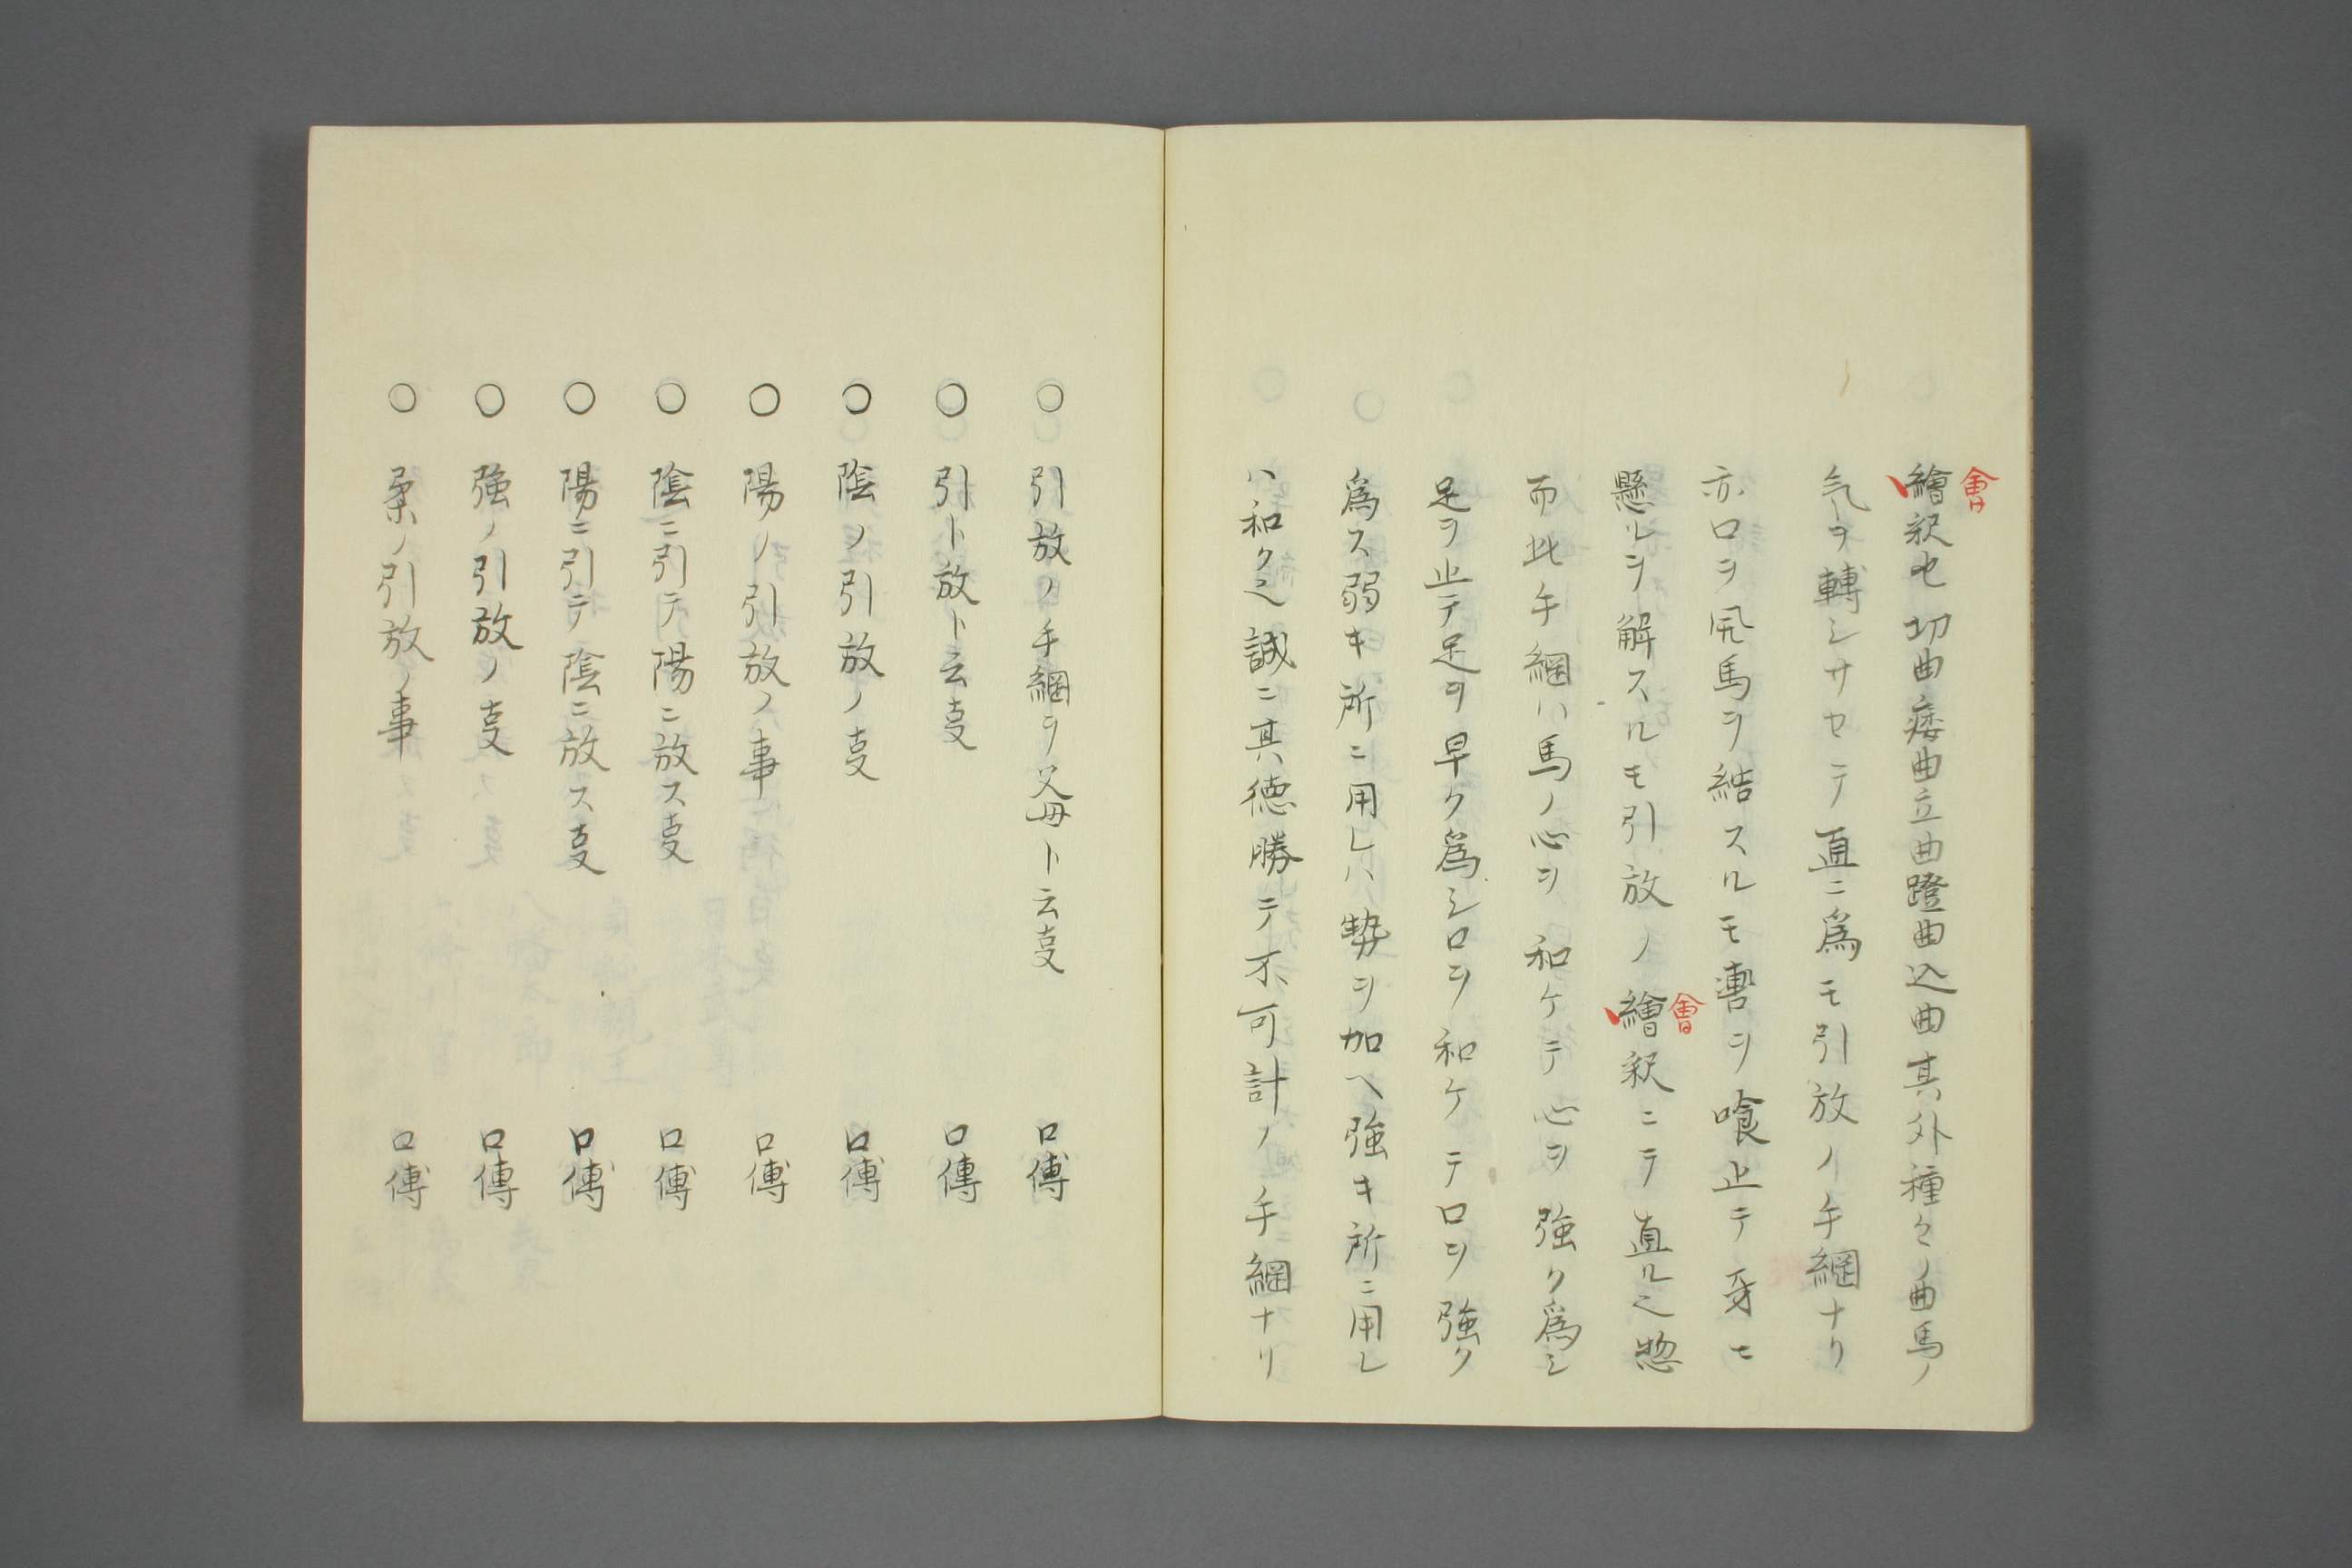 會
繪釈也切曲痿曲立曲蹬曲込曲其外種々ノ曲馬ノ
気ヲ轉シサセテ直ニ爲モ引放ノ手綱ナリ
亦口ヲ閉馬ヲ結スルモ轡ヲ喰止テ牙ヒ
懸ルヲ解スルモ引放ノ繪釈ニテ直ル之惣
會
而此手綱ハ馬ノ心ヲ和ケテ心ヲ強ク爲シ
足ヲ止テ足ヲ早ク爲シ口ヲ和ケテ口ヲ強ク
爲ス弱キ所ニ用レハ勢ヲ加ヘ強キ所ニ用レ
ハ和ク之誠ニ其徳勝テ不可計ノ手綱ナリ
○引放ノ手綱ヲ父母ト云叓 口傳
○引ト放ト云叓 口傳
○陰ノ引放ノ叓 口傳
○陽ノ引放ノ事 口傳
○陰ニ引テ陽ニ放ス叓 口傳
○陽ニ引テ陰ニ放ス叓 口傳
○強ノ引放ノ叓 口傳
○柔ノ引放ノ事 口傳